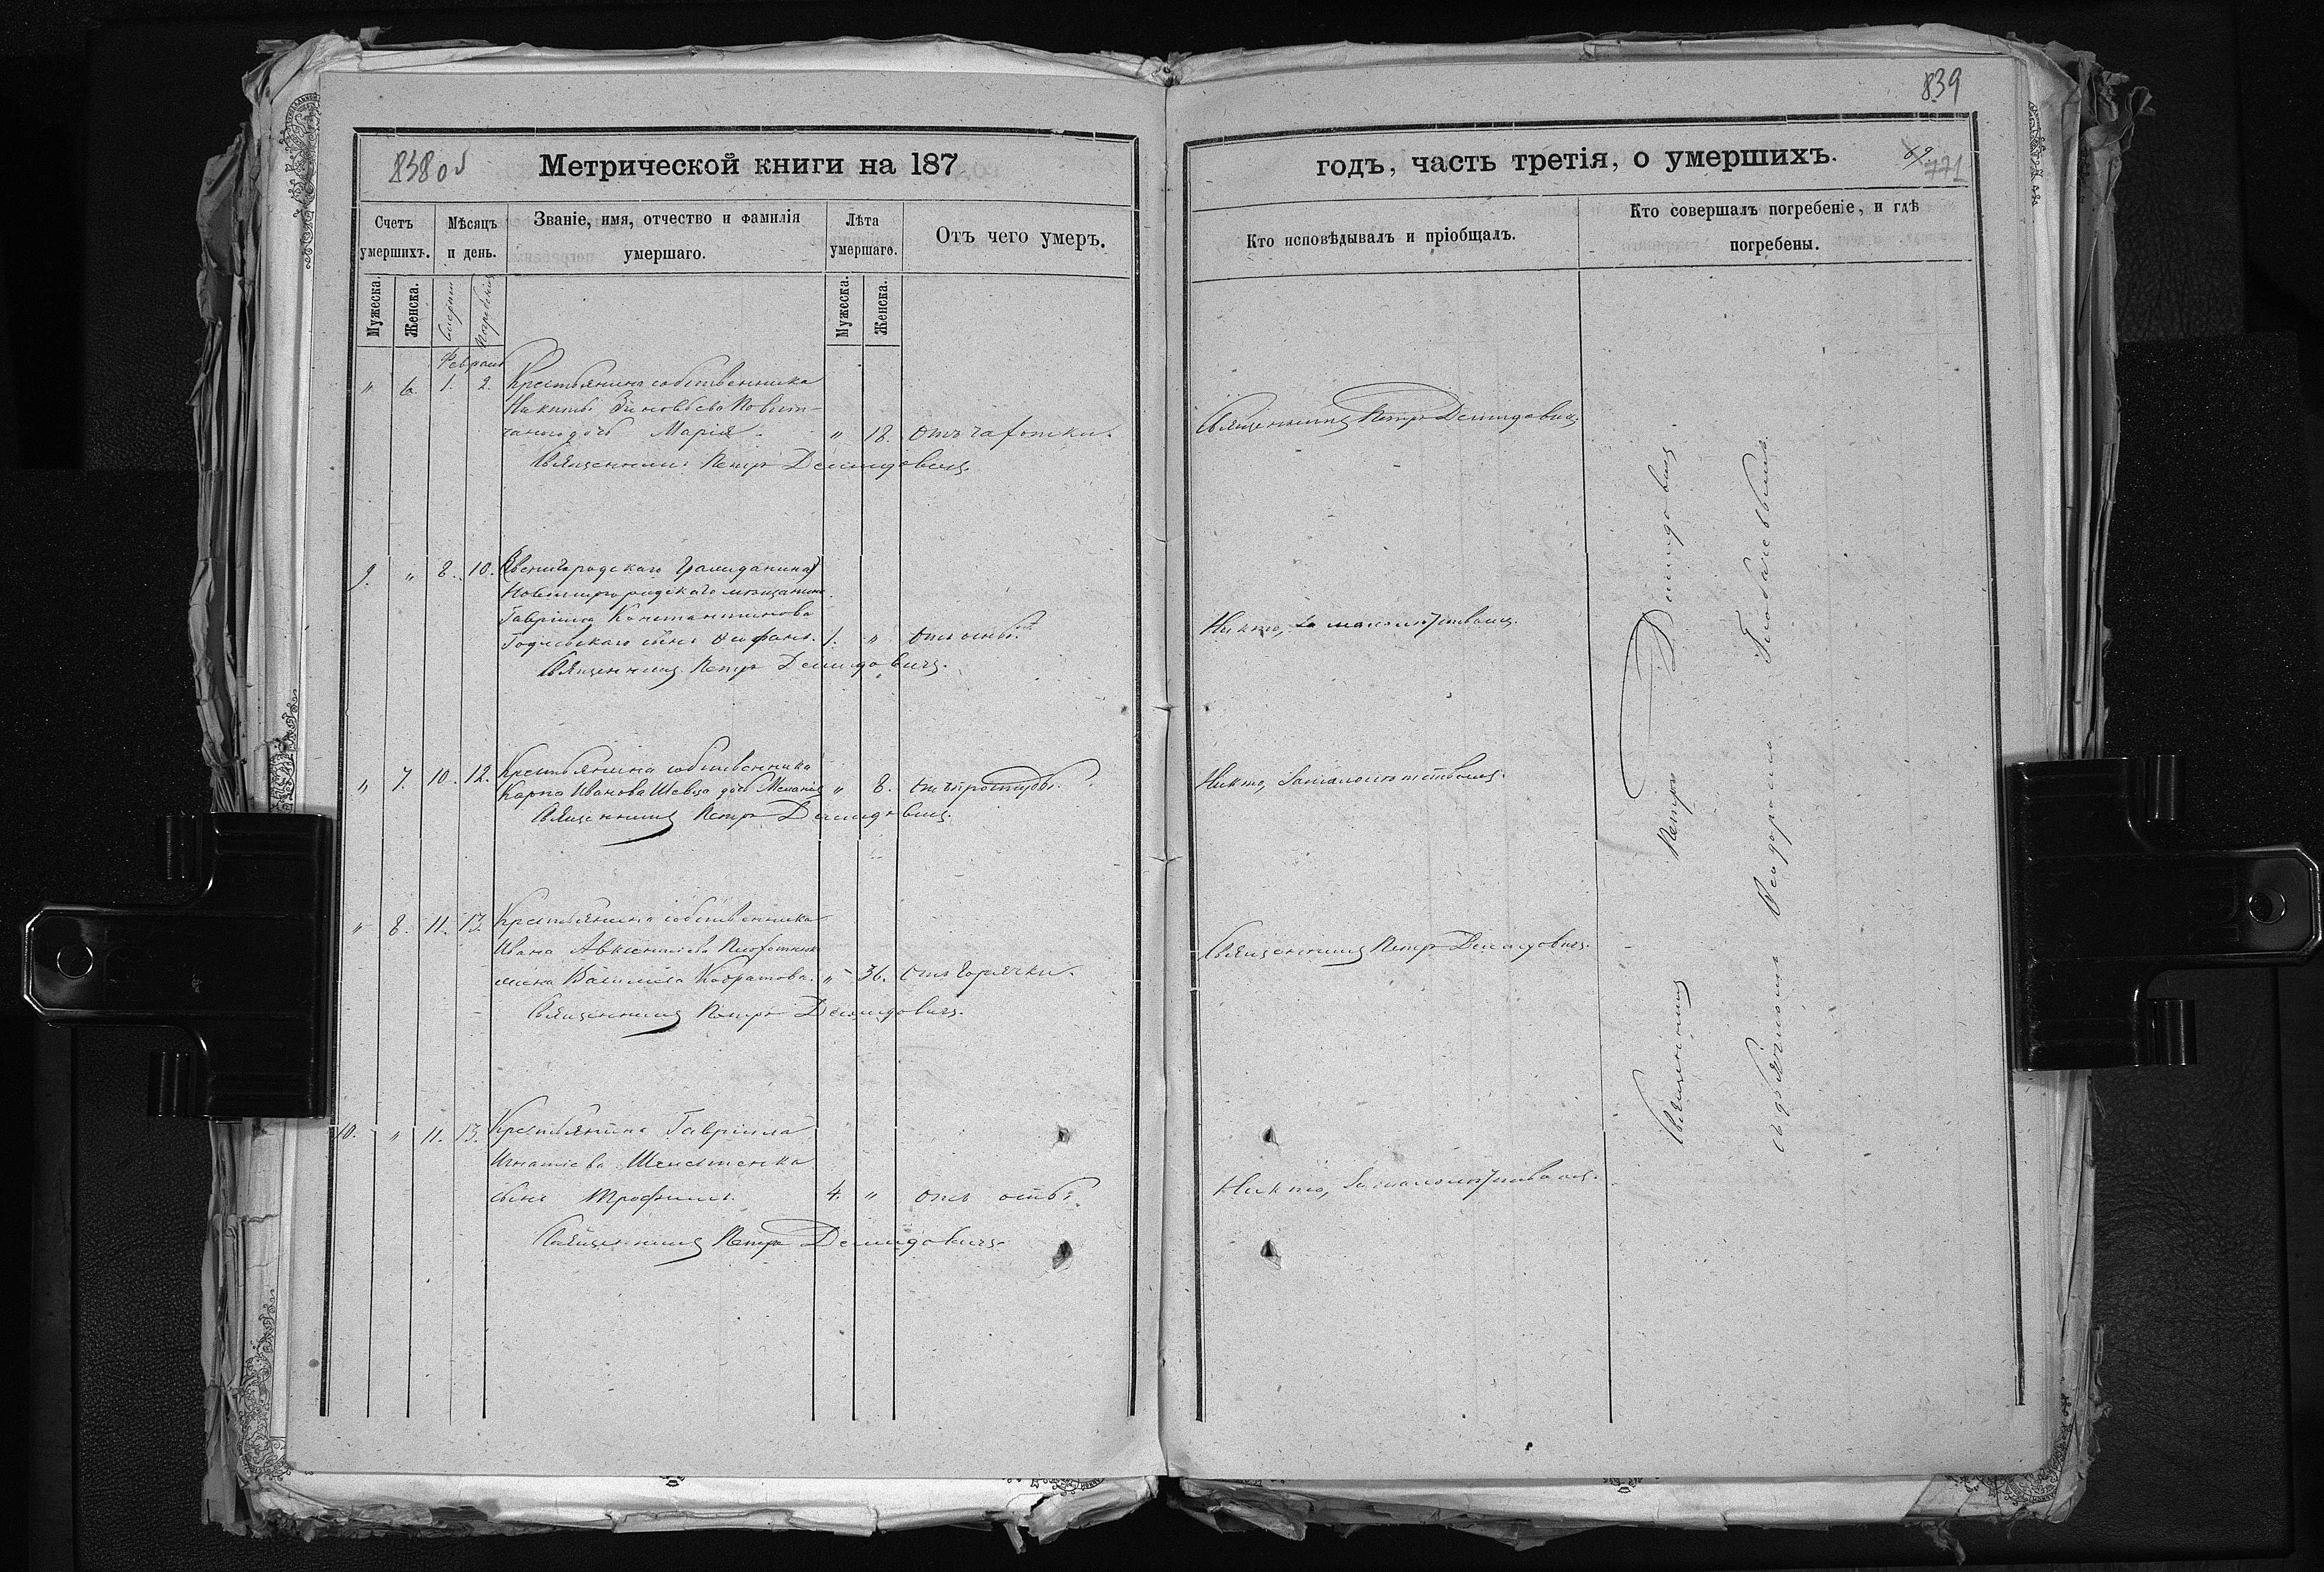 839
838 об
Метрической книги на 187
годъ, часть третія, о умершихъ.
771
Счетъ умершихъ.
Мѣсяцъ и день.
Званіе, имя, отчество и фамилія умершаго.
Лѣта умершаго.
Отъ чего умеръ.
Кто исповѣдывалъ и пріобщалъ.
Кто совершалъ погребеніе, и гдѣ погребены.
Мужеска.
Женска.
Смерти
Погребенія
Мужеска.
Женска.
Февраль
" 6. 1. 2. Крестьянина собственника
Никиты Зиновьева
дочь Марія. " 18. Отъ чахотки.
Священникъ Петръ Демидовичъ.
Священникъ Петръ Демидовичъ.
9. " 8. 10. (Звенигородскаго Гражданина)
Новомиргородскаго мѣщанина
Гавріила Константинова
сынъ Ѳеофанъ. 1. " Отъ оспы.
Священникъ Петръ Демидовичъ.
Никто, за малолѣтствомъ.
" 7. 10. 12. Крестьянина собственника
Карпа Иванова Шевца дочь Меланія " 8. отъ простуды.
Священникъ Петръ Демидовичъ.
Никто, за малолѣтствомъ.
" 8. 11. 13. Крестьянина собственника
Ивана Авксентіева
жена Василиса Кодратова. " 36. Отъ горячки.
Священникъ Петръ Демидовичъ.
Священникъ Петръ Демидовичъ.
10. " 11. 13. Крестьянина Гавріила
Игнатіева
сынъ Трофимъ. 4. " отъ оспы.
Священникъ Петръ Демидовичъ.
Никто, за малолѣтствомъ.
Священникъ Петръ Демидовичъ
съ дьячкомъ Ѳеодоромъ